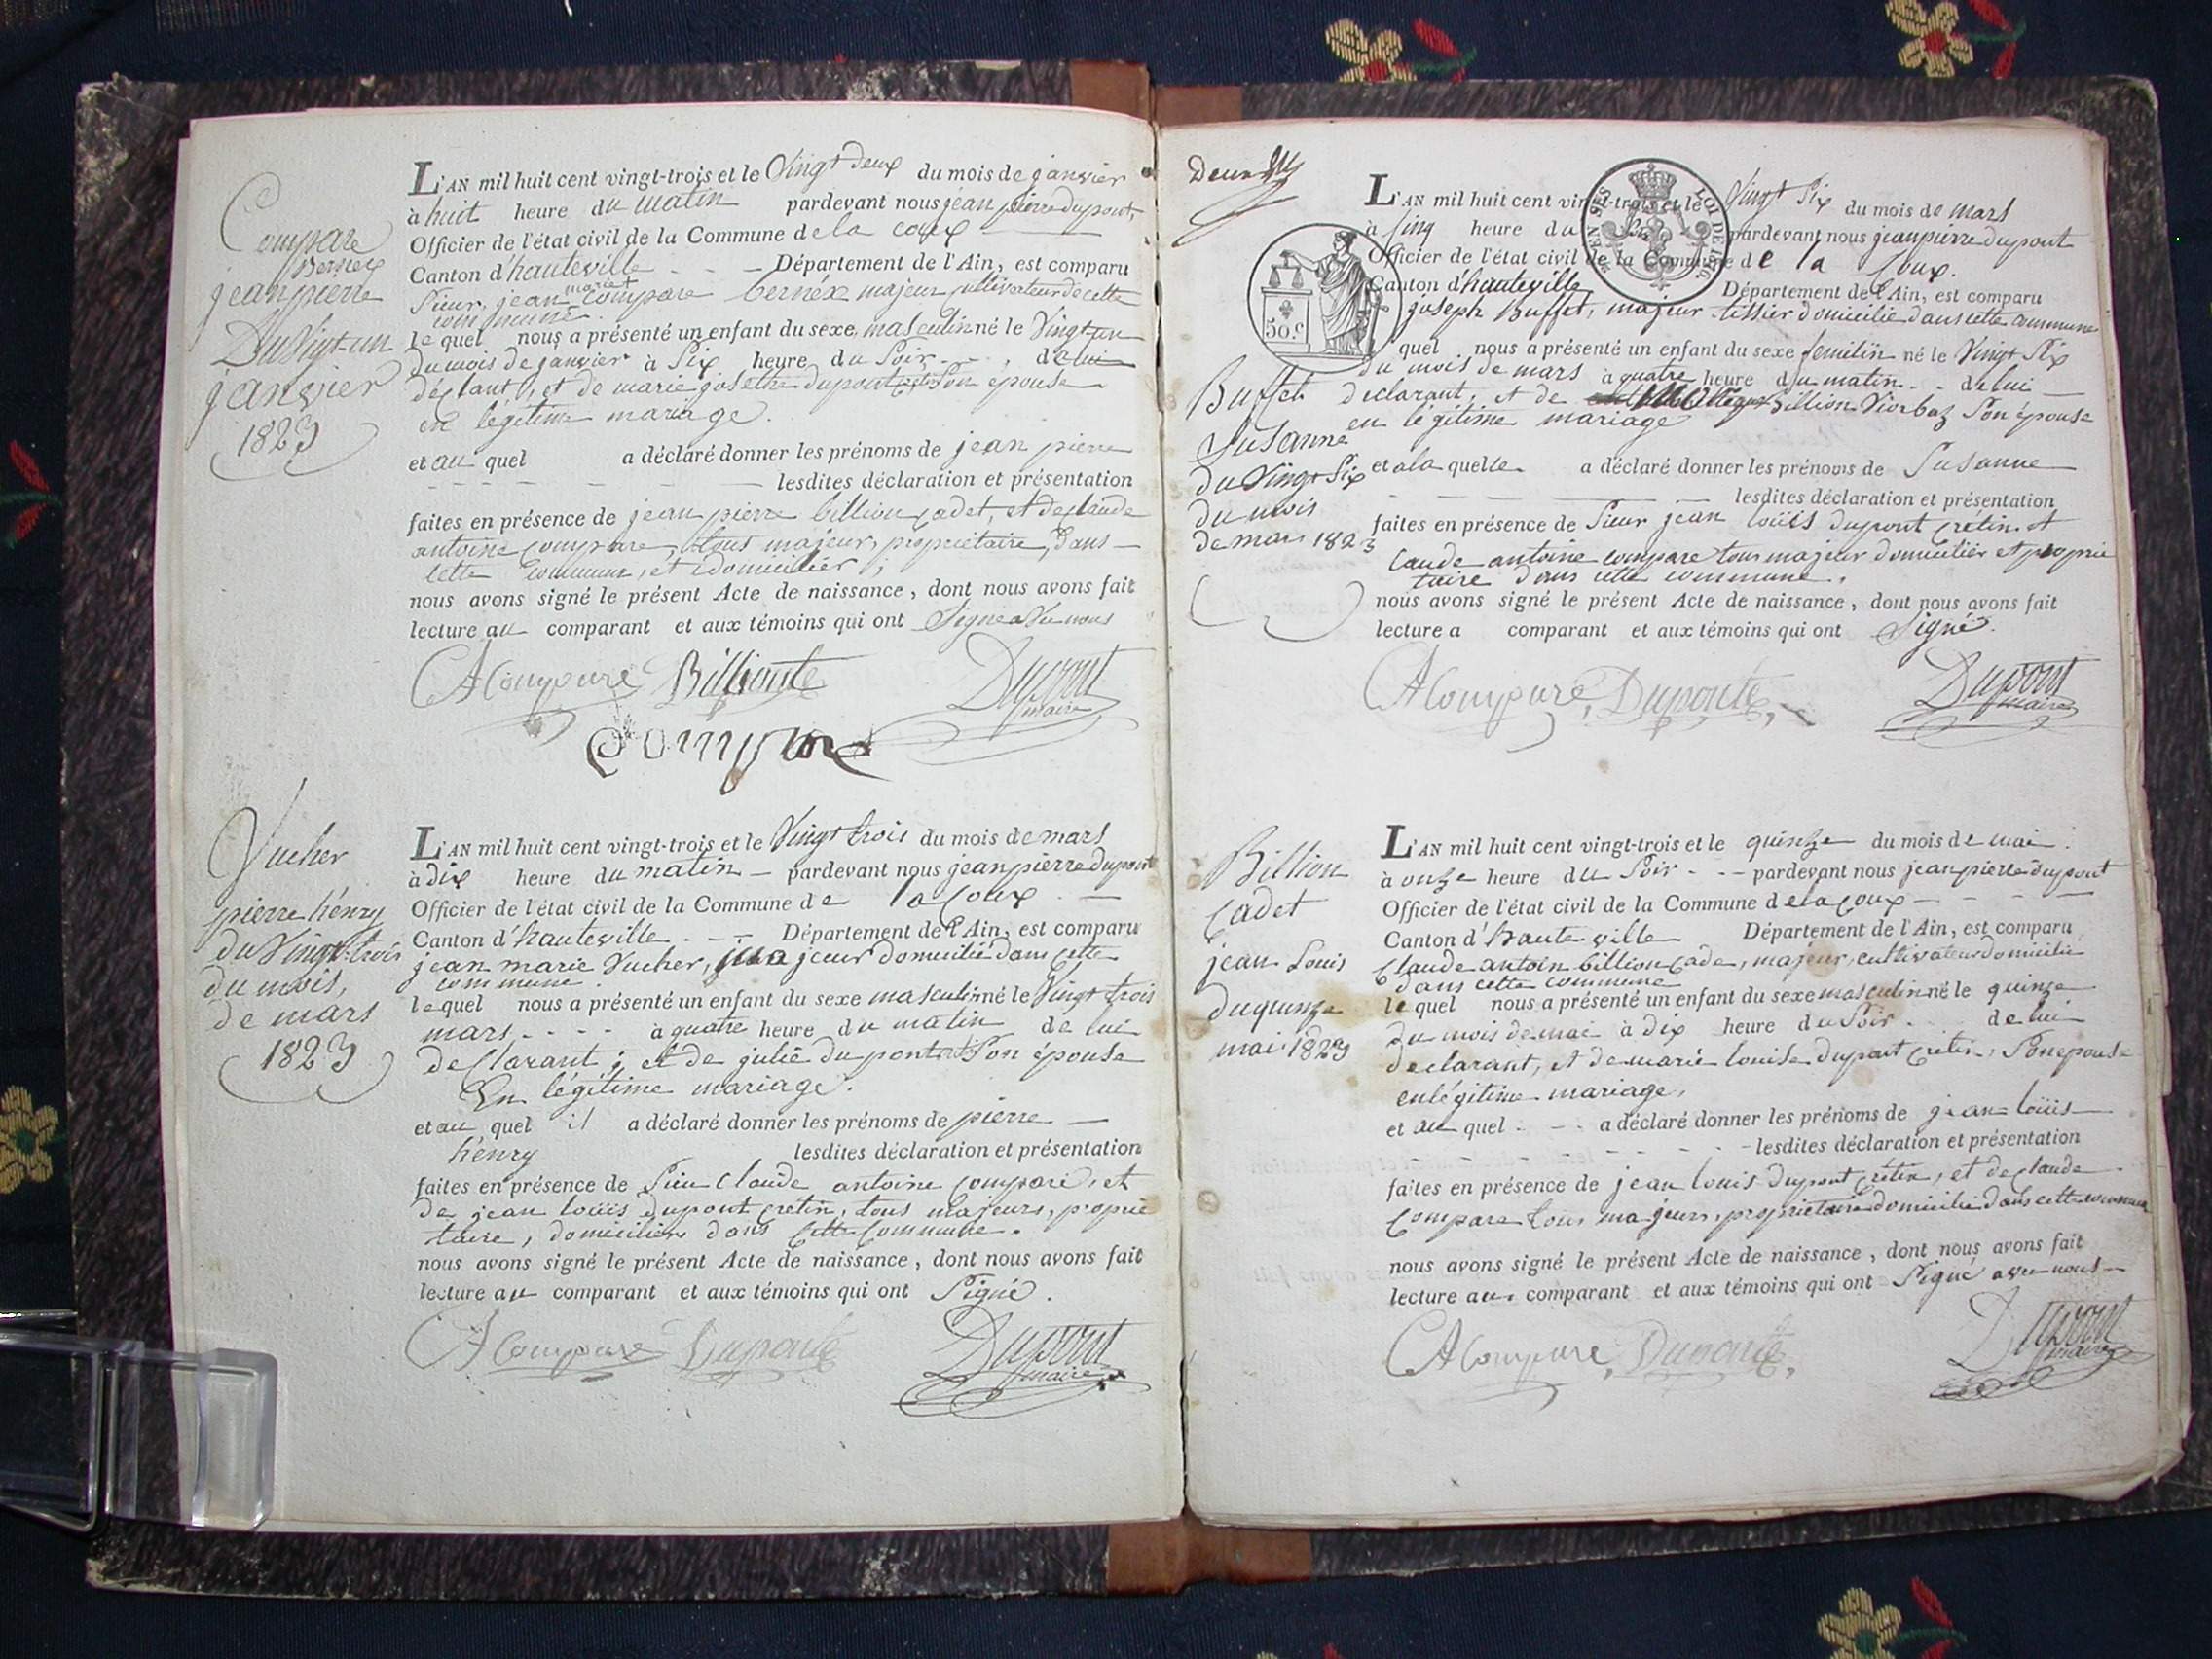 Compare
Bernex
jean pierre
Du vigt-un
janvier
1823
L'AN mil huit cent vingt-trois et le Vingt deux du mois de janvier
à huit heure du matin pardevant nous jean pierre dupont,
Officier de l'état civil de la Commune de la coux
Canton d'hauteville Département de l'Ain, est comparu
Sieur, jean marie compare bernéx majeur cultivateur de cette
commune.
le quel nous a présenté un enfant du sexe masculin né le Vingt-un
du mois de janvier à Six heure du Soir de lui
déclant, et de marie josethe dupont Son épouse
en légetime mariage.
et au quel a déclaré donner les prénoms de jean pierre
lesdites déclaration et présentation
faites en présence de jean pierre billion cadet, et de claude
antoine compare, tous majeur, propriétaire, dans
cette commune, et domicilier,
nous avons signé le présent Acte de naissance, dont nous avons fait
lecture au comparant et aux témoins qui ont Signé
A Compare Dupont
maire
Vucher
pierre hénry
du Vingt-trois
du mois,
de mars
1823
L'AN mil huit cent vingt-trois et le Vingt trois du mois de mars
à dix heure du matin pardevant nous jean pierre dupont
Officier de l'état civil de la Commune de la Coux
Canton d'hauteville Département de l'Ain, est comparu
jean marie Vucher, majeur domicilié dans cette
commune.
le quel nous a présenté un enfant du sexe masculin né le Vingt trois
mars à quatre heure du matin de lui
déclarant; et de julie dupont Son épouse
En légitime mariage.
et au quel il a déclaré donner les prénoms de pierre
hénry lesdites déclaration et présentation
faites en présence de Sieu Claude antoine comparé, et
de jean loüis dupont cretin, tous majeurs, proprié
taire, domiciliers dans cette commune.
nous avons signé le présent Acte de naissance, dont nous avons fait
lecture au comparant et aux témoins qui ont Signé.
A Compare Duponte Dupont
maire
50.c
LOI DE 1816.
Buffet
Susanne
du Vingt Six
du mois
de mars 1823
L'AN mil huit cent vingt-trois et le Vingt Six du mois de mars
à Cinq heure du pardevant nous jean pierre dupont
Officier de l'état civil de la Commune de la Coux.
Canton d'hauteville Département de l'Ain, est comparu
joseph Buffet, majeur tissier domicilié dans cette commune
quel nous a présenté un enfant du sexe femilin né le Vingt Six
du mois de mars à quatre heure du matin de lui
déclarant, et de Billion Viorbaz Son épouse
en légitime mariage
et a la quelle a déclaré donner les prénoms de Susanne
lesdites déclaration et présentation
faites en présence de Sieur jean loüis dupont crétin. et
Claude antoine compare tous majeur domicilier et proprie
taire dans cette commune.
nous avons signé le présent Acte de naissance, dont nous avons fait
lecture a comparant et aux témoins qui ont Signé.
A Compare, Duponte, Dupont
maire
Billion
Cadet
jean Louis
du quinze
mai 1823
L'AN mil huit cent vingt-trois et le quinze du mois de mai.
à onze heure du Soir pardevant nous jean pierre dupont
Officier de l'état civil de la Commune de la Coux
Canton d'hauteville Département de l'Ain, est comparu
Claude antoin billion cade, majeur, cultivateur domicilié
dans cette commune
le quel nous a présenté un enfant du sexe masculin né le quinze
du mois de mai à dix heure du Soir de lui
déclarant, et de marie louise dupont cretin, Son epouse
en légitime mariage,
et au quel a déclaré donner les prénoms de jean loüis
lesdites déclaration et présentation
faites en présence de jean louis dupont crétin, et de claude
Compare tous majeurs, propriétaire domicilié dans cette commune
nous avons signé le présent Acte de naissance, dont nous avons fait
lecture au comparant et aux témoins qui ont Signé avec nous
A Compare, Duponte, Dupont
maire